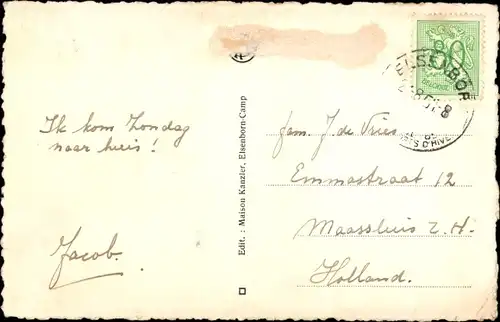 Ik kom Zondag
naar huis!
Jacob.
Edit. : Maison Kanzler, Elsenborn-Camp
fam. J. de Vries
Emmastraat 12
Maassluis Z. H.
Holland.
ELSENBOR